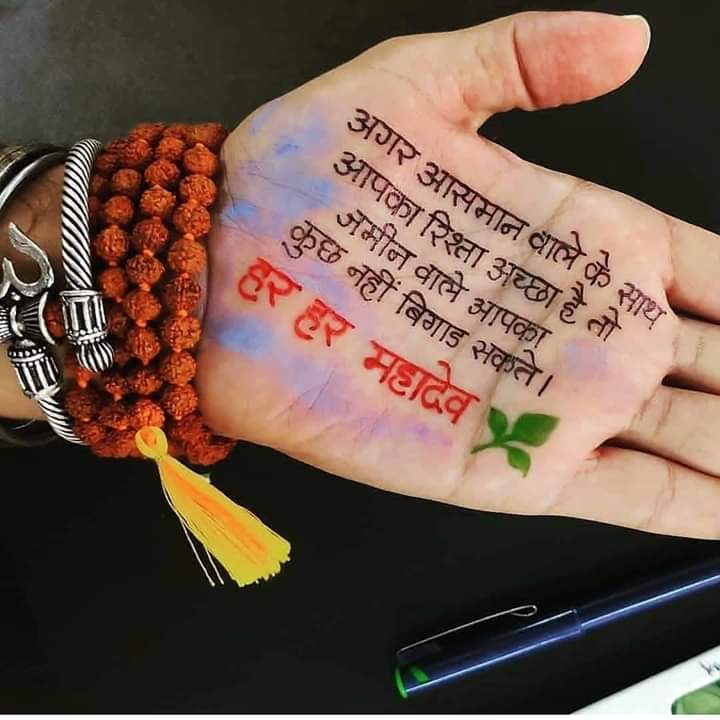 अगर आसमान वाले के साथ
आपका रिश्ता अच्छा है तो
जमीन वाले आपका
कुछ नहीं बिगाड सकते।
हर हर महादेव